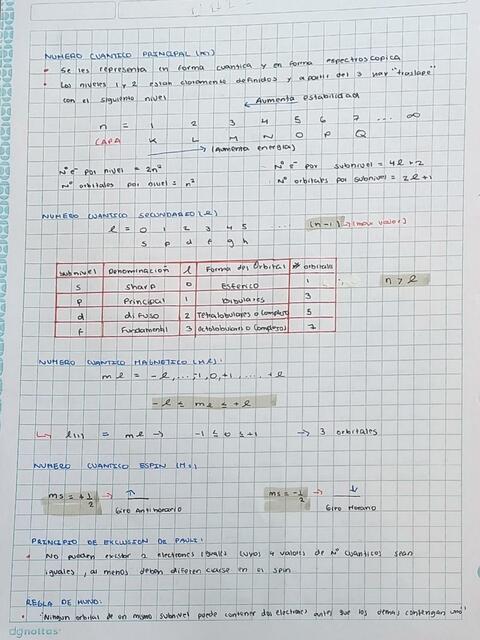 NUMERO CUANTICO PRINCIPAL (n):
• Se les representa en forma cuantica y en forma espectroscopica
• Los niveles 1 y 2 estan claramente definidos y a partir del 3 hay "traslape"
con el siguiente nivel
Aumenta estabilidad
n = 1 2 3 4 5 6 7 ... ∞
CAPA K L M N O P Q
(Aumenta energia)
N° e⁻ por nivel = 2n² - N° e⁻ por subnivel = 4l + 2
N° orbitales por nivel = n² - N° orbitales por subnivel = 2l+1
NUMERO CUANTICO SECUNDARIO (l)
l = 0 1 2 3 4 5 ... (n-1) → (max valor)
s p d f g h
subnivel Denominación l Forma del Orbital # orbitals
s sharp 0 Esferico 1
p Principal 1 Dilobulares 3
d difuso 2 Tetralobulares o complejo 5
f Fundamental 3 Octolobulares o (complejos) 7
n > l
NUMERO CUANTICO MAGNETICO (ml):
ml = -l, ..., -1, 0, +1, ..., +l
-l ≤ ml ≤ +l
↳ l(1) = ml → -1 ≤ 0 ≤ +1 → 3 orbitales
NUMERO CUANTICO ESPIN (Ms)
ms = +1/2 → ↑ ms = -1/2 → ↓
Giro Antihorario Giro Horario
PRINCIPIO DE EXCLUSION DE PAULI:
• No pueden existir 2 electrones iguales cuyos 4 valores de N° cuanticos sean
iguales, al menos deben diferenciarse en el spin
REGLA DE HUND:
• "Ningun orbital de un mismo subnivel puede contener dos electrones antes que los demas contengan uno"
dgnottas